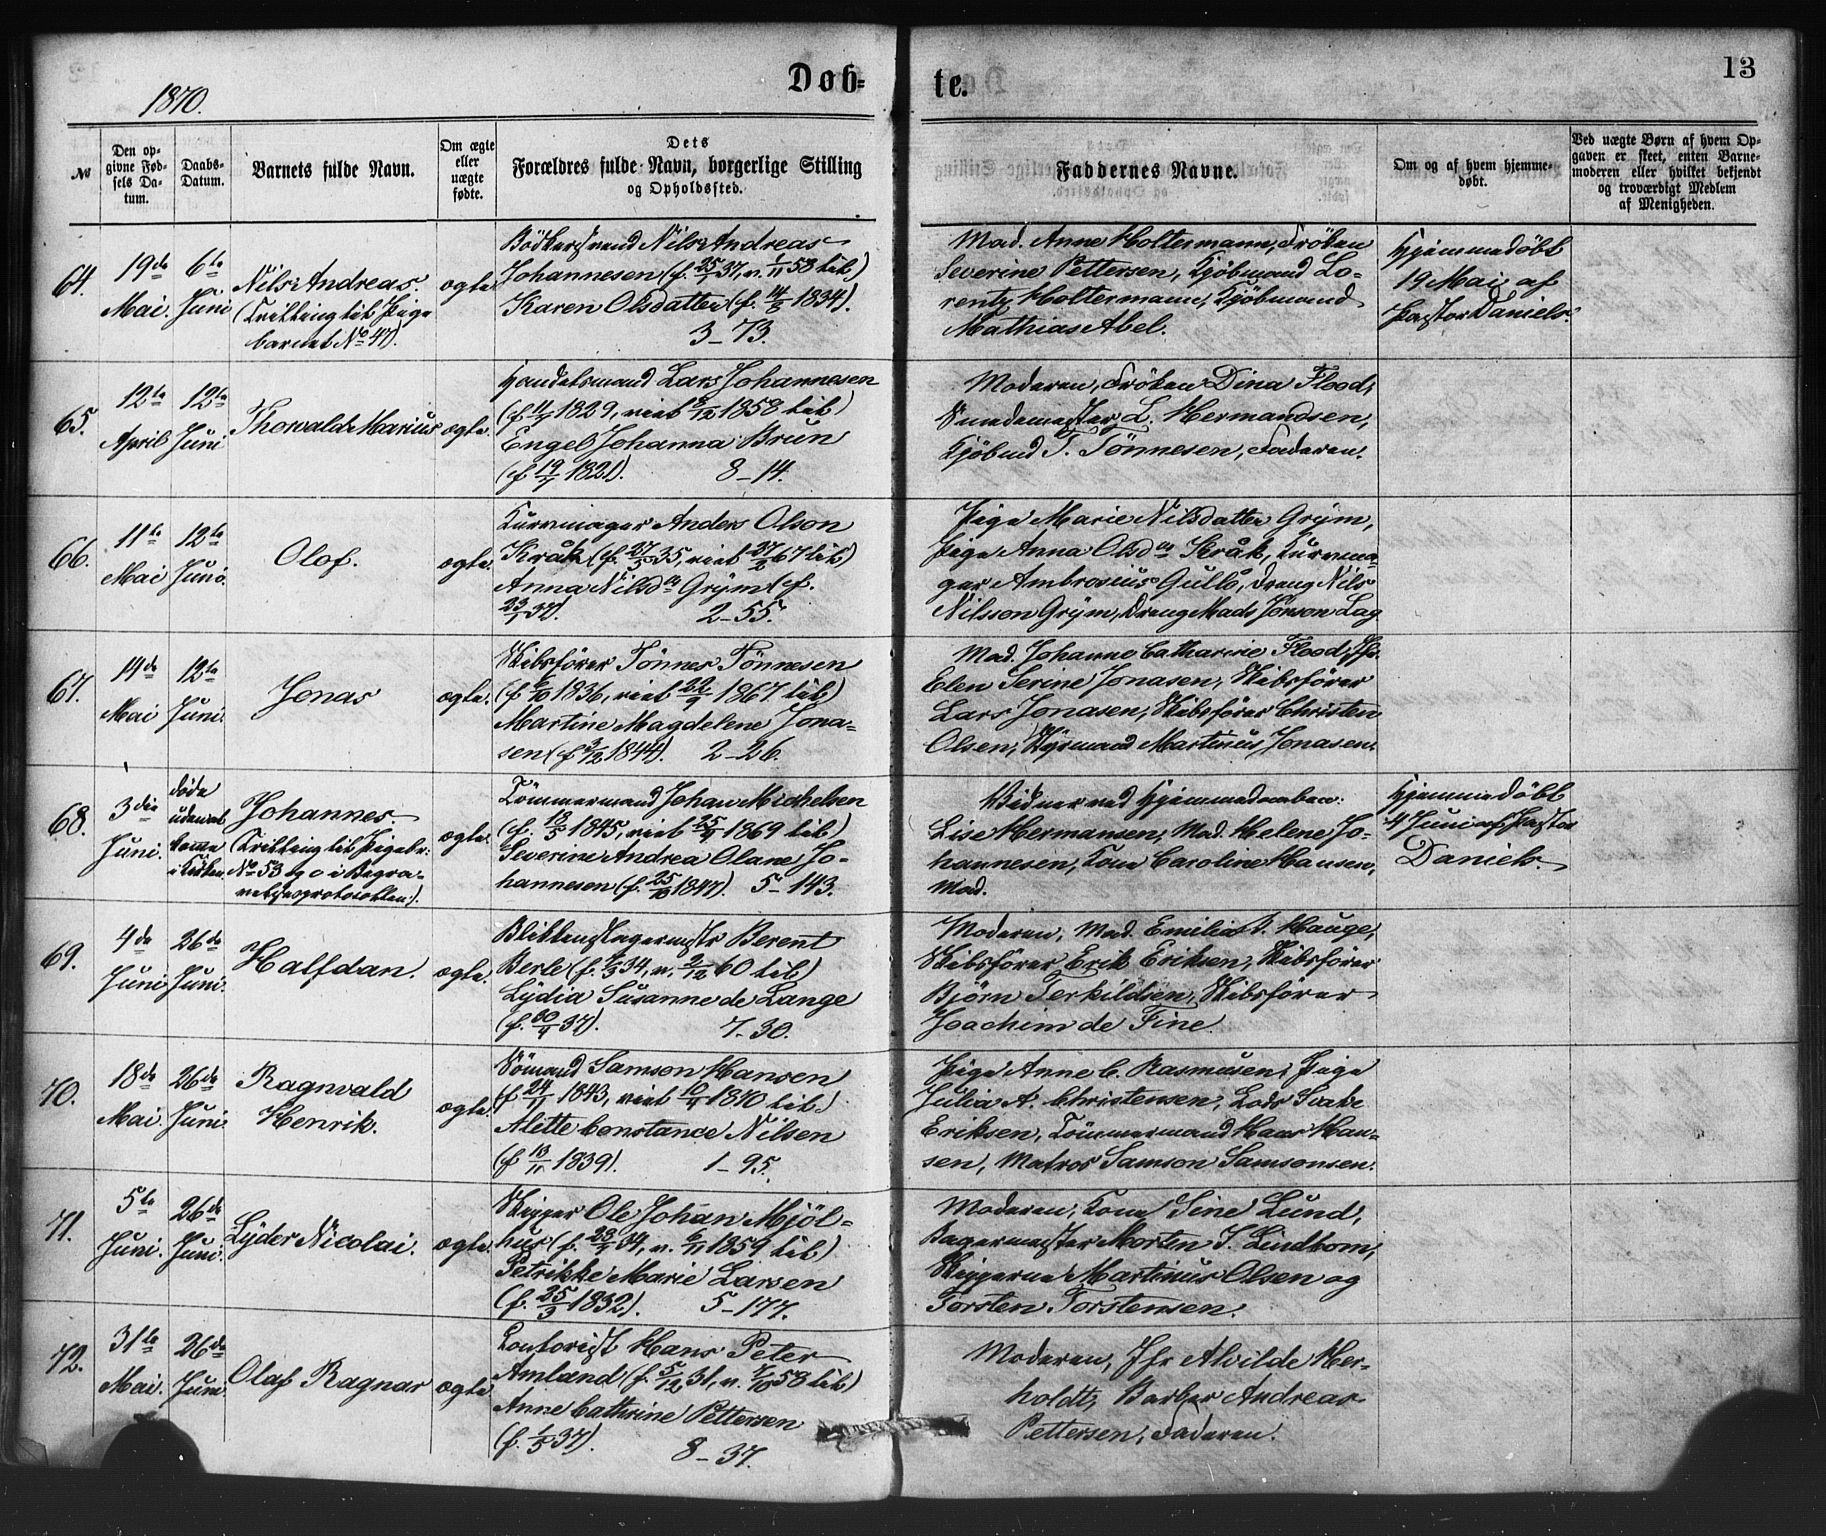 1870.
Døb-
te.
13
№
Den op-
givne Fød-
sels Da-
tum.
Daabs-
Datum.
Barnets fulde Navn.
Om ægte
eller
uægte
fødte.
Dets
Forældres fulde Navn, borgerlige Stilling
og Opholdssted.
Faddernes Navne.
Om og af hvem hjemme-
døbt.
Ved uægte Børn af hvem Op-
gaven er skeet, enten Barne-
moderen eller hvilket bekjendt
og troværdigt Medlem
af Menigheden.
64.
19de
Mai.
6te
Juni
Nils Andreas.
(Tvilling til Pige
barnet No 47).
ægte
Bødkersvend Nils Andreas
Johannesen (f. 37, v. 1/11 58 til)
Karen Olsdatter (f. 1834).
3-73.
Mad. Anne Holtermann, Frøken
Severine Pettersen, Kjøbmand Lo-
rentz Holtermann, Kjøbmand
Mathias Abel.
Hjemmedøbt
19 Mai af
Pastor Daniels.
65.
12te
April
12te
Juni
Thorvald Marius
ægte.
Handelsmand Lars Johannesen
(f. 1829, viet 1858 til)
Engel Johanna Brun
(f. 1821). 8-14.
Moderen, Frøken Dina Flood,
Smedemester L. Hermandsen,
Kjøbmd T. Tønnesen, Faderen.
66.
11te
Mai
12te
Juni
Olof.
ægte.
Kurvmager Anders Olson
Kråk (f. 27/5 35, viet 27/2 67 til)
Anna Nilsd Grÿm (f.
37). 2-55.
Pige Marie Nilsdatter Grÿm,
Pige Anna Olsd Kråk, Kurvma-
ger Ambrosius Gullo, Dreng Nils
Nilsson Grÿm, Dreng Mads Jönson Lag
67.
14de
Mai
12te
Juni.
Jonas
ægte.
Skibsfører Tönnes Tönnesen
(f. 6/10 1836, viet 22/9 1867 til)
Martine Magdelene Jona-
sen (f. 1844). 2-26.
Mad. Johanne Catharine Flood, Jfr.
Elen Serine Jonasen, Skibsfører
Lars Jonasen, Skibsfører Christen
Olsen, Styrmand Martinus Jonasen.
68.
3die
Juni.
døde
uden at
komme
i Kirken
Johannes.
(Tvilling til Pigebr:
No 53 og 0 i Begra-
velsesprotokollen).
ægte.
Tömmermand Johan Michelsen
(f. 18/5 1845, viet 1869 til)
Severine Andrea Olane Jo-
hannesen (f. 25/10 1847). 5-143.
Vidner ved Hjemmedaaben:
Lise Hermansen, Mad. Helene Jo-
hannesen, Kone Caroline Hansen,
Mad.
Hjemmedøbt
4 Juni af Pastor
Daniels.
69.
4de
Juni
26de
Juni.
Halfdan.
ægte.
Blikkenslagermestr Berent
Berle (f. 34, v. 2/12 60 til)
Lÿdia Susanne de Lange
(f. 30/4 37). 7-30.
Moderen, Mad. Emilia A. Hauge,
Skibsfører Erik Eriksen, Skibsfører
Bjørn Terkildsen, Skibsfører
Joachim de Fine.
70.
18de
Mai.
26de
Juni
Ragnvald
Henrik.
ægte.
Sömand Samson Hansen
(f. 1843, viet 10/4 1870 til)
Alette Constance Nilsen
(f. 13/11 1839). 1-95.
Pige Anne C. Rasmusen, Pige
Julia A. Christensen, Lods Svale
Eriksen, Tömmermand Haas Han-
sen, Matros Samson Samsonsen.
71.
5te
Juni.
26de
Juni.
Lÿder Nicolai.
ægte.
Skipper Ole Johan Mjöl-
hus (f. 34, v. 6/11 1859 til)
Petrikke Marie Larsen
(f. 25/3 1832). 5-177.
Moderen, Kone Sine Lund,
Bagermester Morten S. Lindtom,
Skipperne Martinus Olsen og
Torsten Torstensen.
72.
31te
Mai.
26de
Juni
Olaf Ragnar
ægte
Contorist Hans Peter
Amland (f. 5/12 31, v. 7/10 58 til)
Anne Cathrine Pettersen
(f. 1/5 37). 8-37.
Moderen, Jfr Alvilde Her-
holdt, Barber Andreas
Pettersen, Faderen.